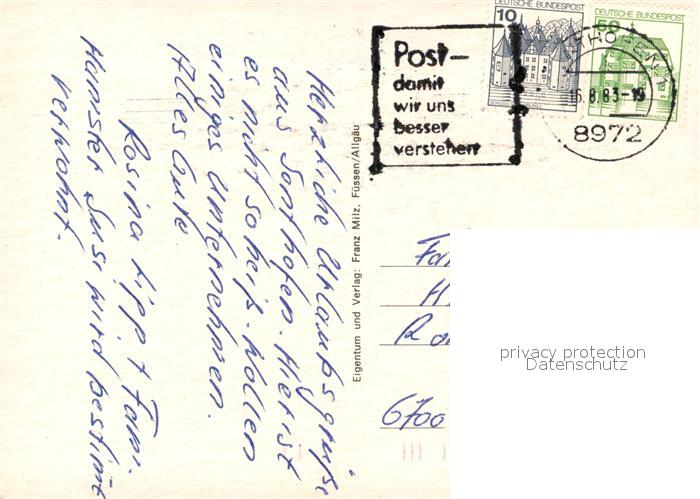 Herzliche Urlaubsgrüße
aus Sonthofen. Hier ist
es nicht so heiß. Wollen
einiges unternehmen.
Alles Gute
Rosina Lipp + Fam.
Hamster Susi wird bestimmt
verwöhnt.
Eigentum und Verlag: Franz Milz, Füssen/Allgäu
Post–
damit
wir uns
besser
verstehen
10 DEUTSCHE BUNDESPOST
DEUTSCHE BUNDESPOST
50
THOFEN
16.8.83-19
8972
Fam
H
R
6700
privacy protection
Datenschutz